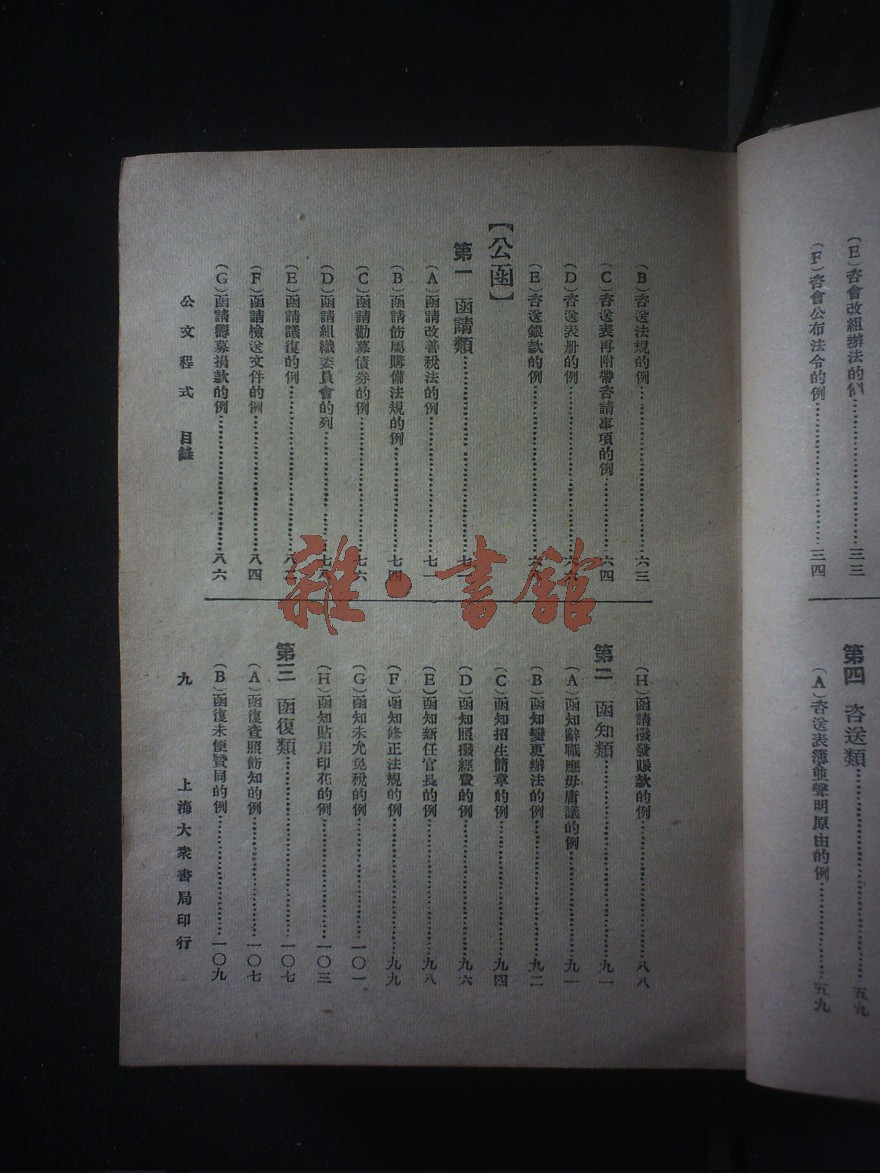 (E)咨會改組辦法的例……三三
(F)咨會公布法令的例……三四
第四 咨送類……五九
(A)咨送表簿並聲明原由的例……五九
(B)咨送法規的例……六三
(C)咨送表再附帶咨請事項的例……六四
(D)咨送表册的例……六
(E)咨送銀款的例……六
【公函】
第一 函請類……七
(A)函請改善稅法的例……七一
(B)函請飭屬購備法規的例……七四
(C)函請勸募債券的例……七六
(D)函請組織委員會的列……七
(E)函請議復的例……八
(F)函請檢送文件的例……八四
(G)函請籌募捐款的例……八六
(H)函請撥發賑款的例……八八
第二 函知類……九一
(A)函知辭職應毋庸議的例……九一
(B)函知變更辦法的例……九二
(C)函知招生簡章的例……九四
(D)函知照撥經費的例……九六
(E)函知新任官長的例……九八
(F)函知修正法規的例……九九
(G)函知未允免稅的例……一〇一
(H)函知貼用印花的例……一〇三
第三 函復類……一〇七
(A)函復查照飭知的例……一〇七
(B)函復未便贊同的例……一〇九
公文程式 目錄
九
上海大衆書局印行
雜·書館